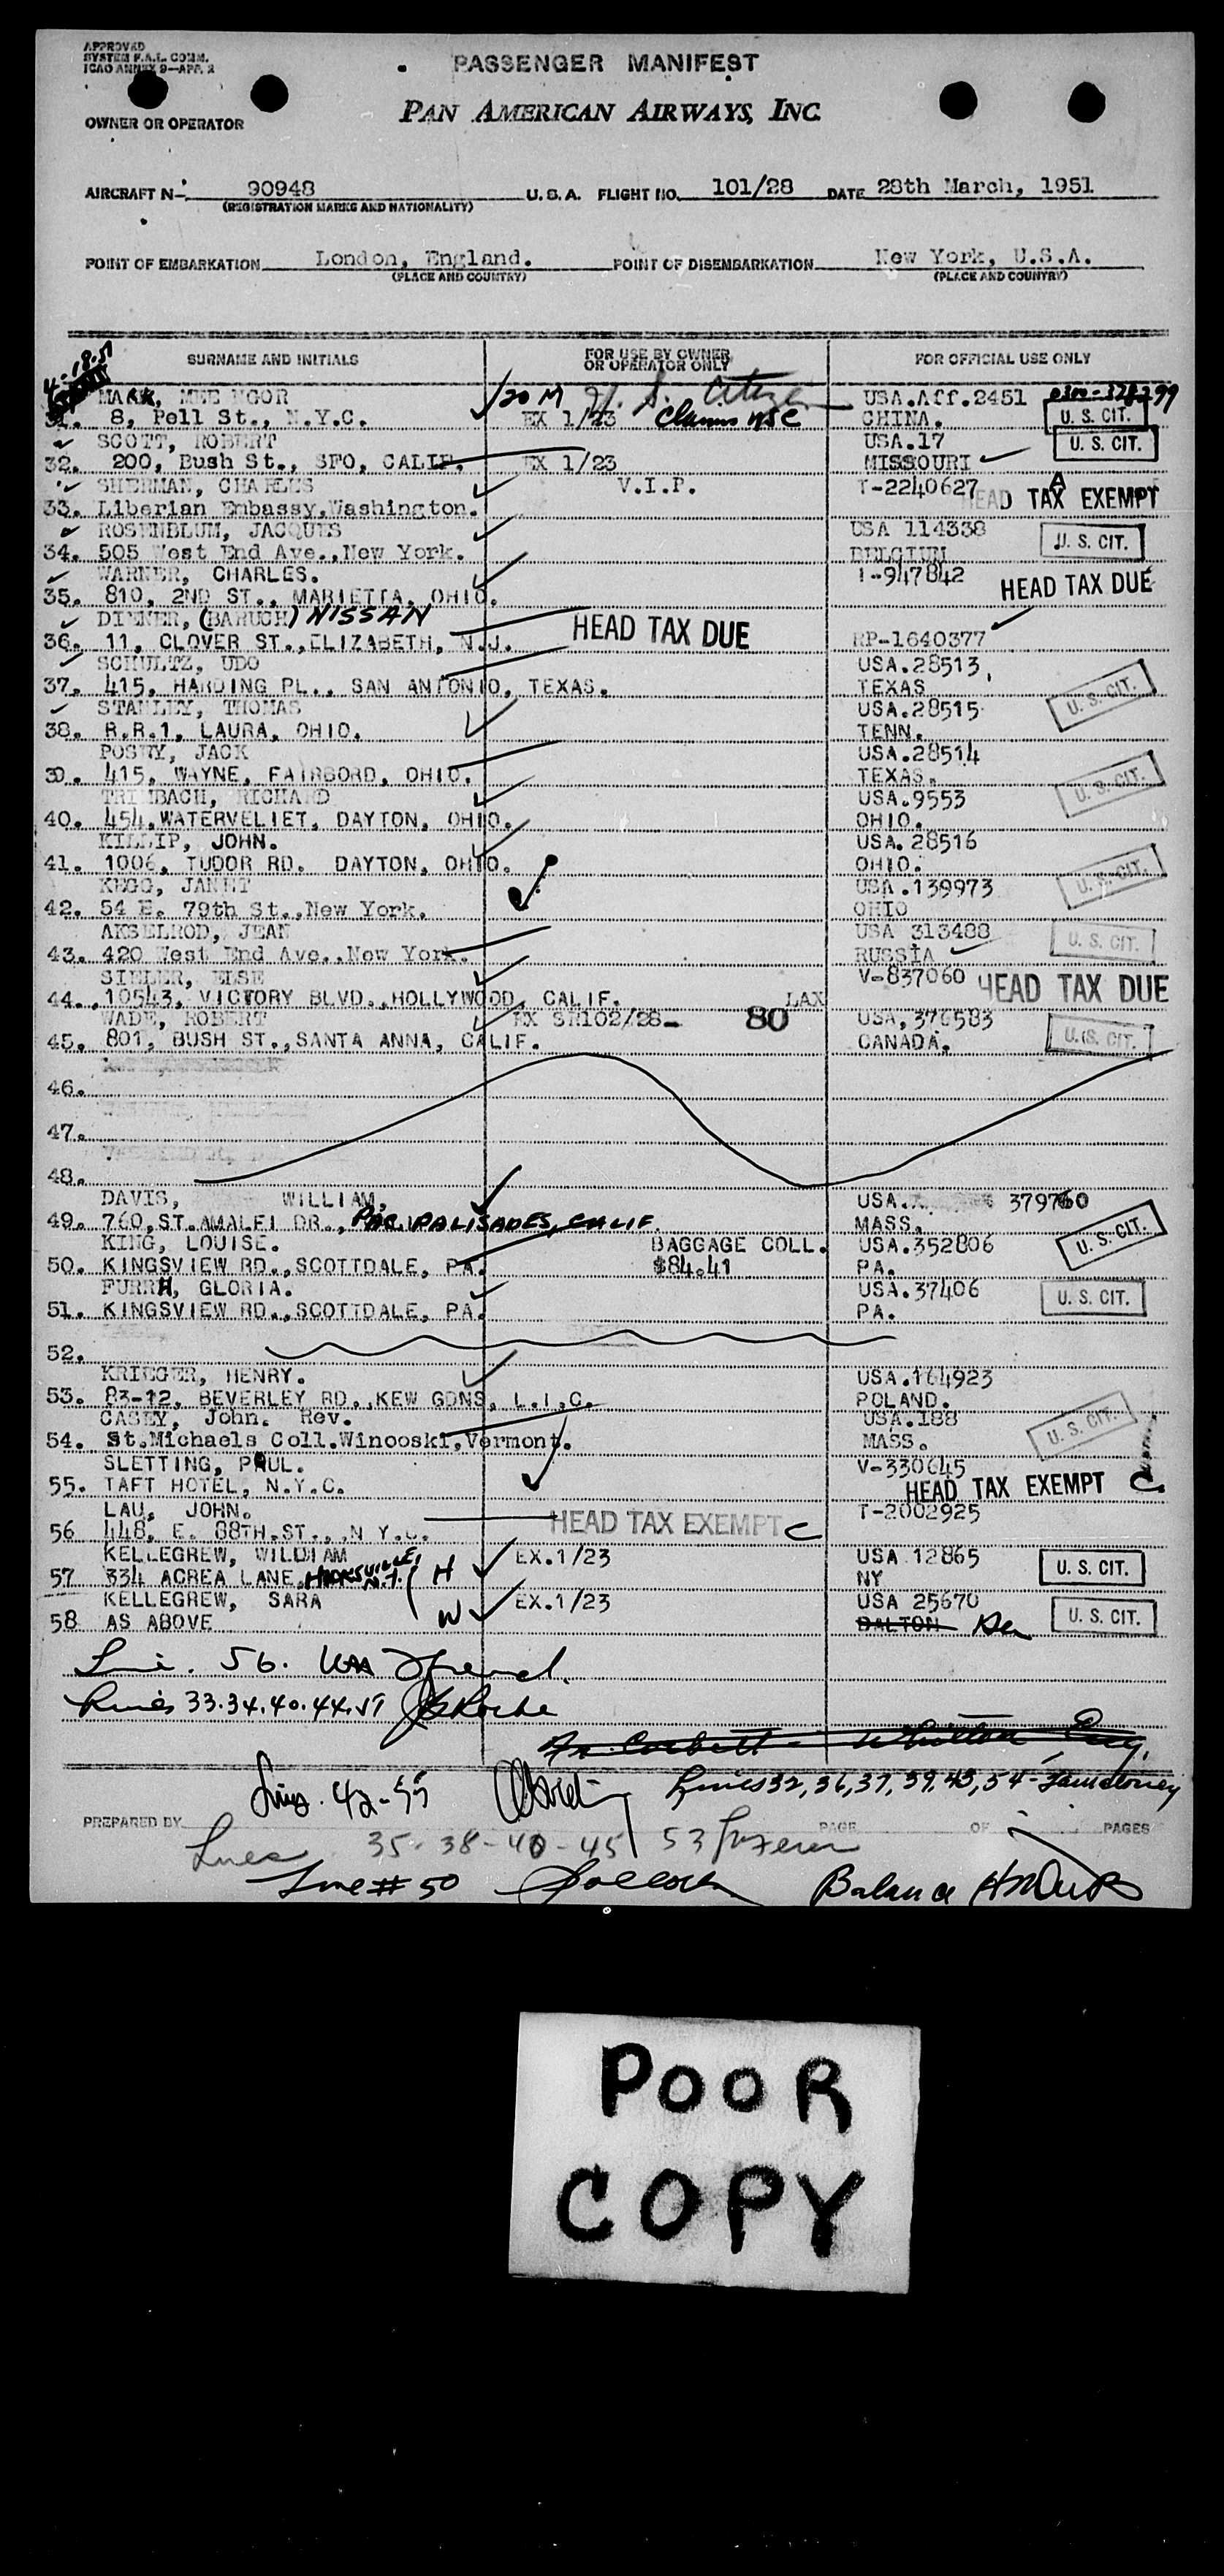 APPROVED
SYSTEM F.A.L. COMM.
ICAO ANNEX 9—APP. 2
PASSENGER MANIFEST
PAN AMERICAN AIRWAYS, INC.
OWNER OR OPERATOR
AIRCRAFT N-. 90948 U.S.A. FLIGHT NO. 101/28 DATE 28th March, 1951
(REGISTRATION MARKS AND NATIONALITY)
POINT OF EMBARKATION London, England. POINT OF DISEMBARKATION New York, U.S.A.
(PLACE AND COUNTRY) (PLACE AND COUNTRY)
4-18-51
SURNAME AND INITIALS FOR USE BY OWNER OR OPERATOR ONLY FOR OFFICIAL USE ONLY
MARK, MEE NGOR 20 M U. S. Citizen USA.Aff.2451 0300-328299
31. 8, Pell St., N.Y.C. EX 1/23 Claims USC CHINA. U. S. CIT.
SCOTT, ROBERT USA.17 U. S. CIT.
32. 200, Bush St., SFO, CALIF. EX 1/23 MISSOURI
SHERMAN, CHARLES V.I.P. T-2240627 HEAD TAX EXEMPT A
33. Liberian Embassy,Washington.
ROSENBLUM, JACQUES USA 114338
34. 505 West End Ave.,New York. BELGIUM U. S. CIT.
WARNER, CHARLES. I-947842 HEAD TAX DUE
35. 810, 2ND ST., MARIETTA, OHIO.
DIENER, (BARUCH) NISSAN HEAD TAX DUE
36. 11, CLOVER ST.,ELIZABETH, N.J. RP-1640377
SCHULTZ, UDO USA.28513
37. 415, HARDING PL., SAN ANTONIO, TEXAS. TEXAS U. S. CIT.
STANLEY, THOMAS USA.28515
38. R.R.1, LAURA, OHIO. TENN.
POSEY, JACK USA.28514
39. 415, WAYNE, FAIRBORD, OHIO. TEXAS. U. S. CIT.
TRIMBACH, RICHARD USA.9553
40. 454,WATERVELIET, DAYTON, OHIO. OHIO.
KILLIP, JOHN. USA. 28516
41. 1006, TUDOR RD. DAYTON, OHIO. OHIO. U. S. CIT.
KEGG, JANET USA.139973
42. 54 E. 79th St.,New York. OHIO
AKSELROD, JEAN USA 313488
43. 420 West End Ave.,New York. RUSSIA U. S. CIT.
SIELER, ELSE V-837060 HEAD TAX DUE
44. 10543, VICTORY BLVD.,HOLLYWOOD, CALIF. LAX
WADE, ROBERT EX SR102/28- 80 USA, 376583
45. 801, BUSH ST.,SANTA ANNA, CALIF. CANADA. U. S. CIT.
46.
47.
48.
DAVIS, WILLIAM, USA. 379760
49. 760,ST.AMALFI DR., PAC. PALISADES, CALIF. MASS.
KING, LOUISE. BAGGAGE COLL. USA.352806 U. S. CIT.
50. KINGSVIEW RD.,SCOTTDALE, PA. $84.41 PA.
FURRH, GLORIA. USA.37406
51. KINGSVIEW RD.,SCOTTDALE, PA. PA. U. S. CIT.
52.
KRIEGER, HENRY. USA.164923
53. 83-12, BEVERLEY RD.,KEW GDNS, L.I.C. POLAND.
CASEY, John. Rev. USA.188
54. St.Michaels Coll.Winooski,Vermont. MASS. U. S. CIT.
SLETTING, PAUL. V-330645
55. TAFT HOTEL, N.Y.C. HEAD TAX EXEMPT C
LAU, JOHN. T-2002925
56 448, E. 88TH.ST., N Y.C. HEAD TAX EXEMPT C
KELLEGREW, WILLIAM EX.1/23 USA 12865
57 334 ACREA LANE, HICKSVILLE, N.Y. H NY U. S. CIT.
KELLEGREW, SARA EX.1/23 USA 25670
58 AS ABOVE W DALTON U. S. CIT.
Line. 56.
Lines 33.34.40.44.57
Lines. 42-55 Lines 32, 36, 37, 39, 43, 54 -
PREPARED BY PAGE OF PAGES
Lines 35-38-40-45 53
Line # 50 Balance
POOR
COPY